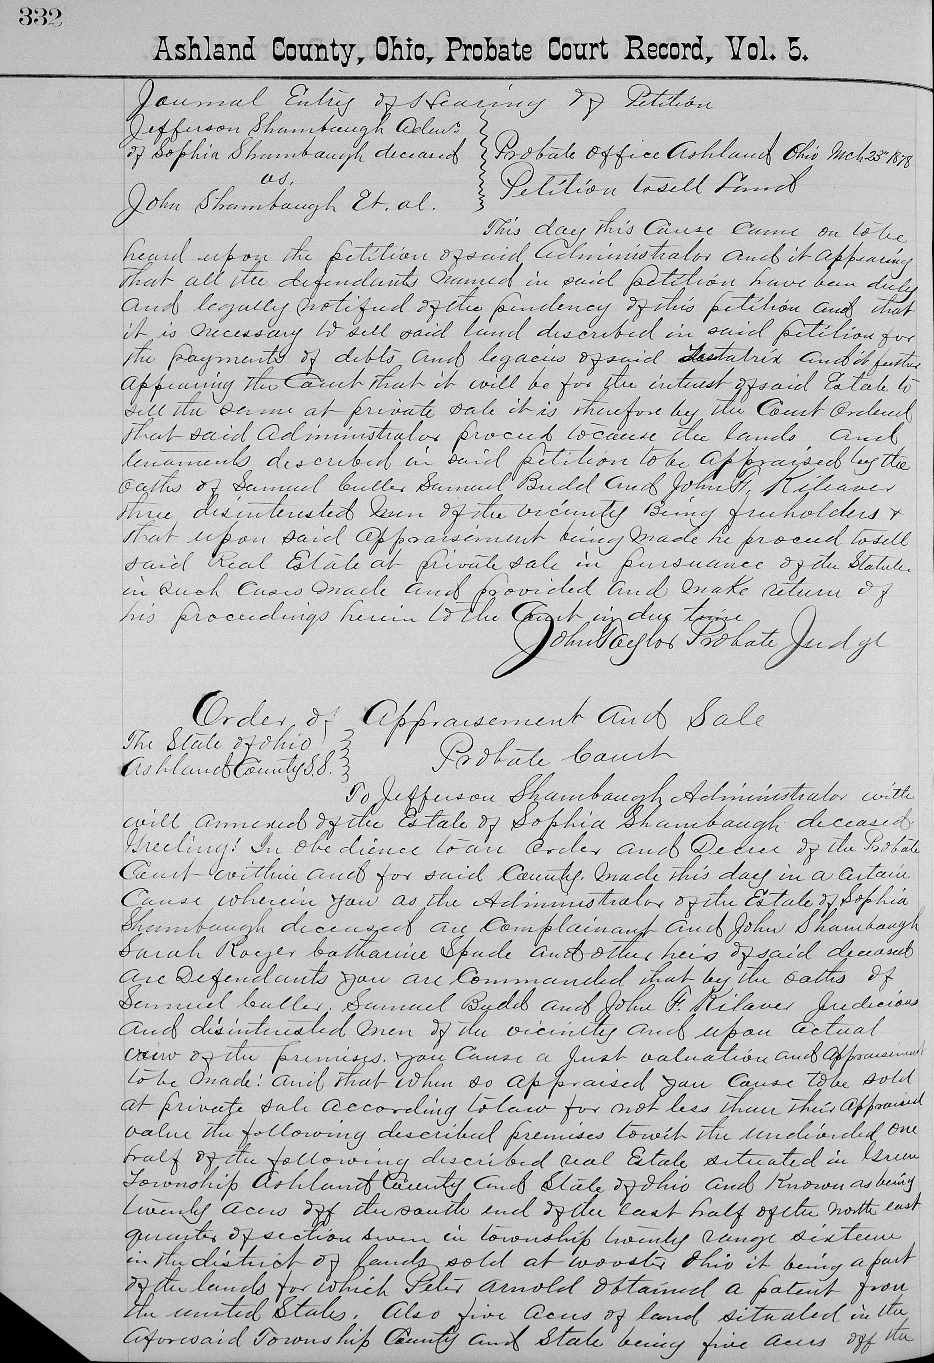 332
Ashland County, Ohio, Probate Court Record, Vol. 5.
Journal Entry of Hearing of Petition
Jefferson Shambaugh Admr.
of Sophia Shambaugh deceased
vs.
John Shambaugh Et. al.
Probate office Ashland Ohio Mch 25" 1878
Petition to sell Land
This day this Cause came on to be
heard upon the petition of said Administrator and it appearing
that all the defendants named in said petition have been duly
and legally notified of the pendency of this petition and that
it is necessary to sell said land described in said petition for
the payments of debts and legacies of said Testatrix and it further
appearing the Court that it will be for the interest of said Estate to
sell the same at private sale it is therefore by the Court Ordered
that said Administrator proceed to cause the lands and
tenaments described in said petition to be appraised by the
oaths of Samuel Culler Samuel Budd and John F. Kileaver
three disinterested men of the vicinity Being freeholders &
that upon said appraisement being made he proceed to sell
said Real Estate at private sale in pursuance of the Statute
in such cases made and provided and make return of
his proceedings herein to the Court in due time
John Taylor Probate Judge
Order of Appraisement and Sale
The State of Ohio
Ashland County S.S.
Probate Court
To Jefferson Shambaugh Administrator with
will annexed of the Estate of Sophia Shambaugh deceased
Greeting! In obedience to an order and Decree of the Probate
Court within and for said County. Made this day in a certain
Cause wherein you as the Administrator of the Estate of Sophia
Shambaugh deceased are Complainant and John Shambaugh
Sarah Royer Catharine Spade and other heirs of said deceased
are Defendants you are Commanded that by the oaths of
Samuel Culler, Samuel Budd and John F. Kilaver Judicious
and disinterested men of the vicinity and upon actual
view of the premises. you Cause a Just valuation and appraisement
to be made: and that when so appraised you cause to be sold
at private sale according to law for not less than their appraised
value the following described premises towit the undivided one
half of the following described real Estate situated in Green
Township Ashland County and State of Ohio and Known as being
twenty acres off the south end of the east half of the north east
quarter of section seven in township twenty range sixteen
in the district of lands sold at wooster Ohio it being a part
of the lands for which Peter Arnold obtained a patent from
the united States. Also five acres of land situated in the
aforesaid Township County and State being five acres off the